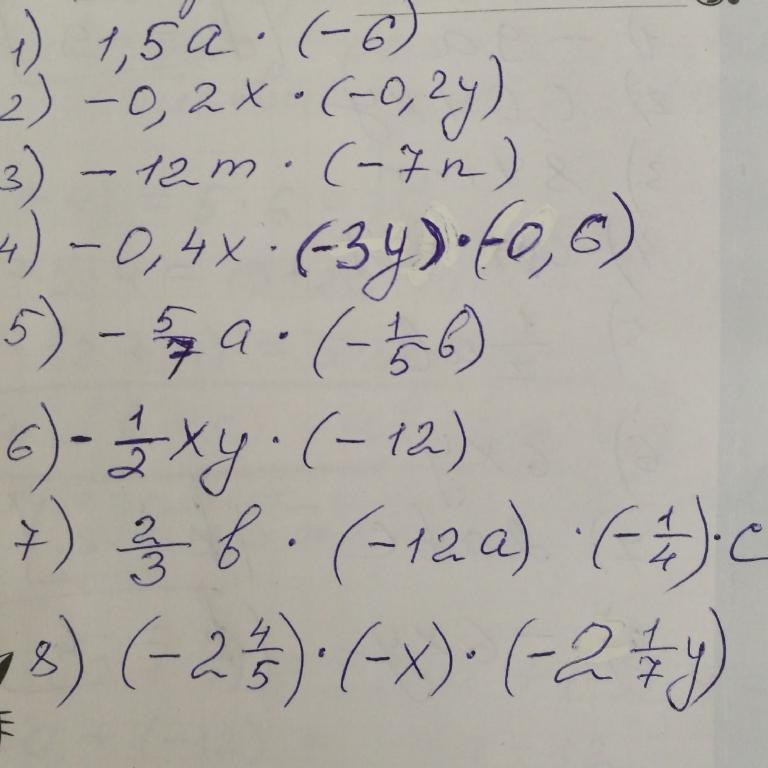 1) 1,5a · (−6)
2) −0,2x · (−0,2y)
3) −12m · (−7n)
4) −0,4x · (−3y) · (−0,6)
5) − 5/7 a · (− 1/5 b)
6) − 1/2 xy · (−12)
7) 2/3 b · (−12a) · (− 1/4) · c
8) (−2 4/5) · (−x) · (−2 1/7 y)